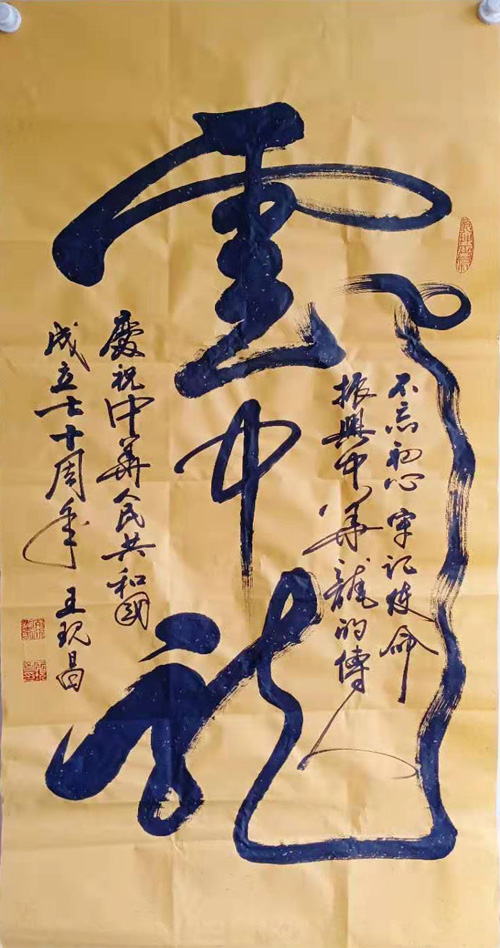 雲中龍
不忘初心牢记使命
振興中華龍的傳人
慶祝中華人民共和國
成立七十周年 王现昌